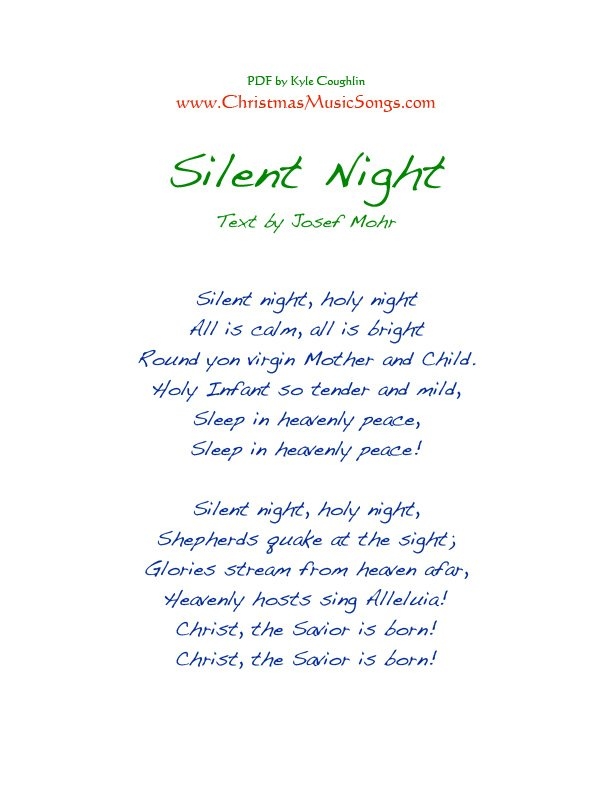 PDF by Kyle Coughlin
www.ChristmasMusicSongs.com
Silent Night
Text by Josef Mohr
Silent night, holy night
All is calm, all is bright
Round yon virgin Mother and Child.
Holy Infant so tender and mild,
Sleep in heavenly peace,
Sleep in heavenly peace!
Silent night, holy night,
Shepherds quake at the sight;
Glories stream from heaven afar,
Heavenly hosts sing Alleluia!
Christ, the Savior is born!
Christ, the Savior is born!